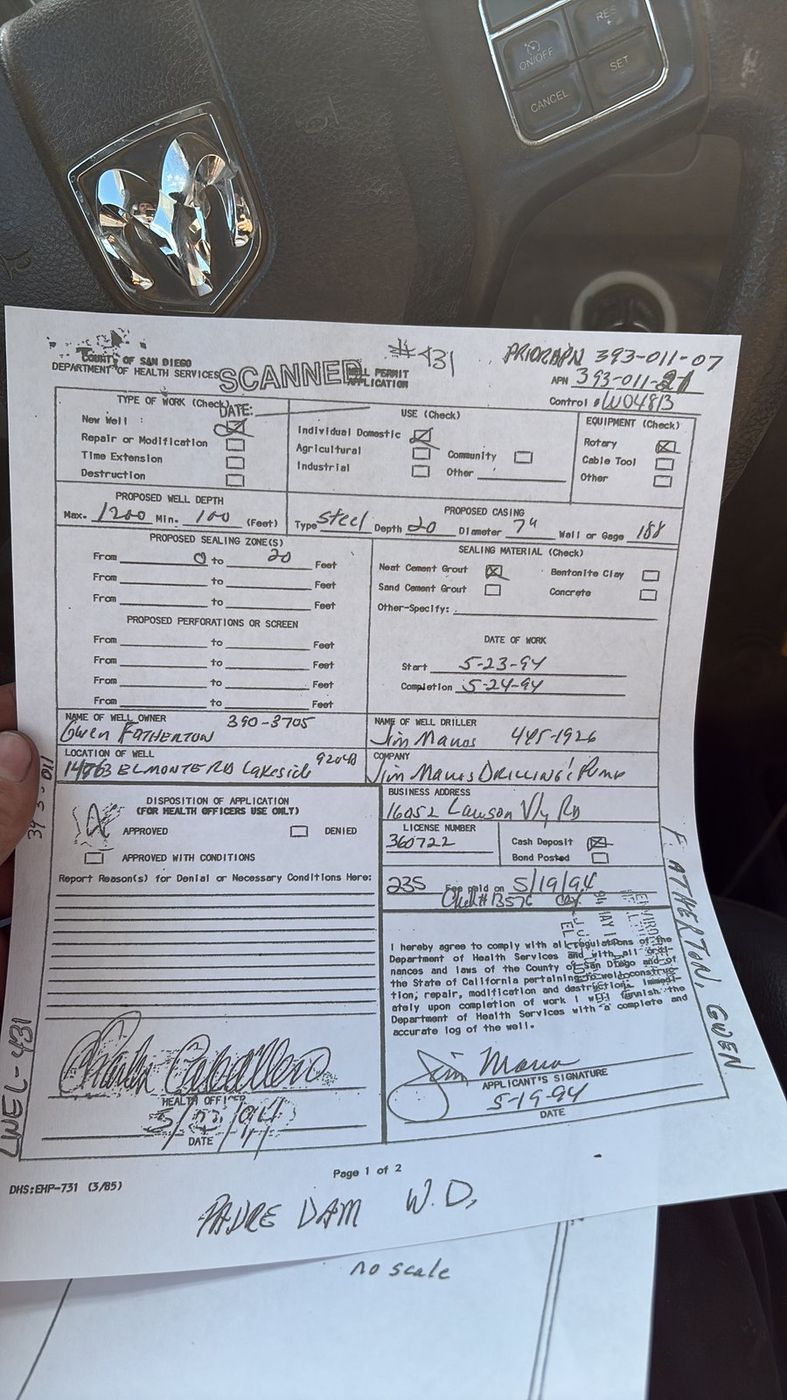 RES
+
ON/OFF
SET
CANCEL
#431
PRIOR APN 393-011-07
COUNTY OF SAN DIEGO
DEPARTMENT OF HEALTH SERVICES
SCANNED
WELL PERMIT
APPLICATION
APN 393-011-21
Control # W04813
TYPE OF WORK (Check)
DATE:
USE (Check)
EQUIPMENT (Check)
New Well :
Individual Domestic
Rotary
Repair or Modification
Agricultural
Community
Cable Tool
Time Extension
Industrial
Other
Other
Destruction
PROPOSED WELL DEPTH
PROPOSED CASING
Max. 1200 Min. 100 (Feet)
Type Steel Depth 20 Diameter 7" Wall or Gage 188
PROPOSED SEALING ZONE(S)
SEALING MATERIAL (Check)
From 0 to 20 Feet
Neat Cement Grout
Bentonite Clay
From to Feet
Sand Cement Grout
Concrete
From to Feet
Other-Specify:
PROPOSED PERFORATIONS OR SCREEN
DATE OF WORK
From to Feet
From to Feet
Start 5-23-94
From to Feet
Completion 5-24-94
From to Feet
NAME OF WELL OWNER 390-3705
Gwen FATHERTON
NAME OF WELL DRILLER
Jim Manos 445-1926
LOCATION OF WELL
14763 ELMONTE RD Lakeside 92040
COMPANY
Jim Manos DRILLING & Pump
BUSINESS ADDRESS
16052 Lawson Vly RD
DISPOSITION OF APPLICATION
(FOR HEALTH OFFICERS USE ONLY)
APPROVED
DENIED
APPROVED WITH CONDITIONS
LICENSE NUMBER
360722
Cash Deposit
Bond Posted
Report Reason(s) for Denial or Necessary Conditions Here:
235 Fee paid on 5/19/94
Check # 13576
I hereby agree to comply with all regulations of the
Department of Health Services and with all ordi-
nances and laws of the County of San Diego and of
the State of California pertaining to well construc-
tion, repair, modification and destruction. Immedi-
ately upon completion of work I will furnish the
Department of Health Services with a complete and
accurate log of the well.
Charles Caballero
HEALTH OFFICER
5/23/94
DATE
Jim Manos
APPLICANT'S SIGNATURE
5-19-94
DATE
393-011
LWEL-431
FATHERTON, GWEN
DHS:EHP-731 (3/85)
Page 1 of 2
PADRE DAM W.D.
no scale